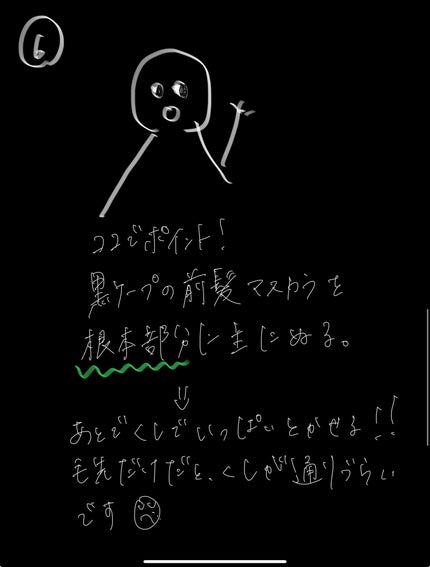 6
ココでポイント!
黒ケープの前髪マスカラを
根本部分に主にぬる。
⇓
あとでくしでいっぱいとかせる!!
毛先だけだと、くしが通りづらい
です